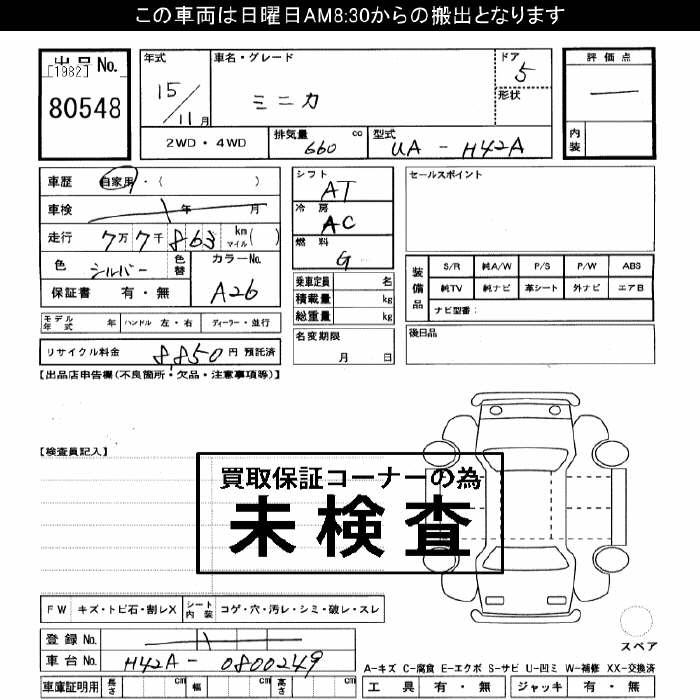 この車両は日曜日AM8:30からの搬出となります
出品 No.
[1982]
80548
年式
15/11月
車名・グレード
ミニカ
ドア
5
形状
評価点
―
内装
2WD・4WD
排気量 660 cc
型式 UA-H42A
車歴 自家用・( )
車検 年 月
走行 7万7千863 km マイル( )
色 シルバー 色替
カラーNo. A26
保証書 有・無
モデル年式 年 ハンドル 左・右 ディーラー・並行
リサイクル料金 8,850円 預託済
シフト AT
冷房 AC
燃料 G
乗車定員 名
積載量 kg
総重量 kg
名変期限
月 日
セールスポイント
装備品
S/R 純A/W P/S P/W ABS
純TV 純ナビ 革シート 外ナビ エアB
ナビ型番:
後日品
【出品店申告欄(不良箇所・欠品・注意事項等)】
【検査員記入】
買取保証コーナーの為
未検査
FW キズ・トビ石・割レX シート内装 コゲ・穴・汚レ・シミ・破レ・スレ
登録No.
車台No. H42A-0800249
スペア
車庫証明用 長さ cm 幅 cm 高さ cm
A-キズ C-腐食 E-エクボ S-サビ U-凹ミ W-補修 XX-交換済
工具 有・無 ジャッキ 有・無